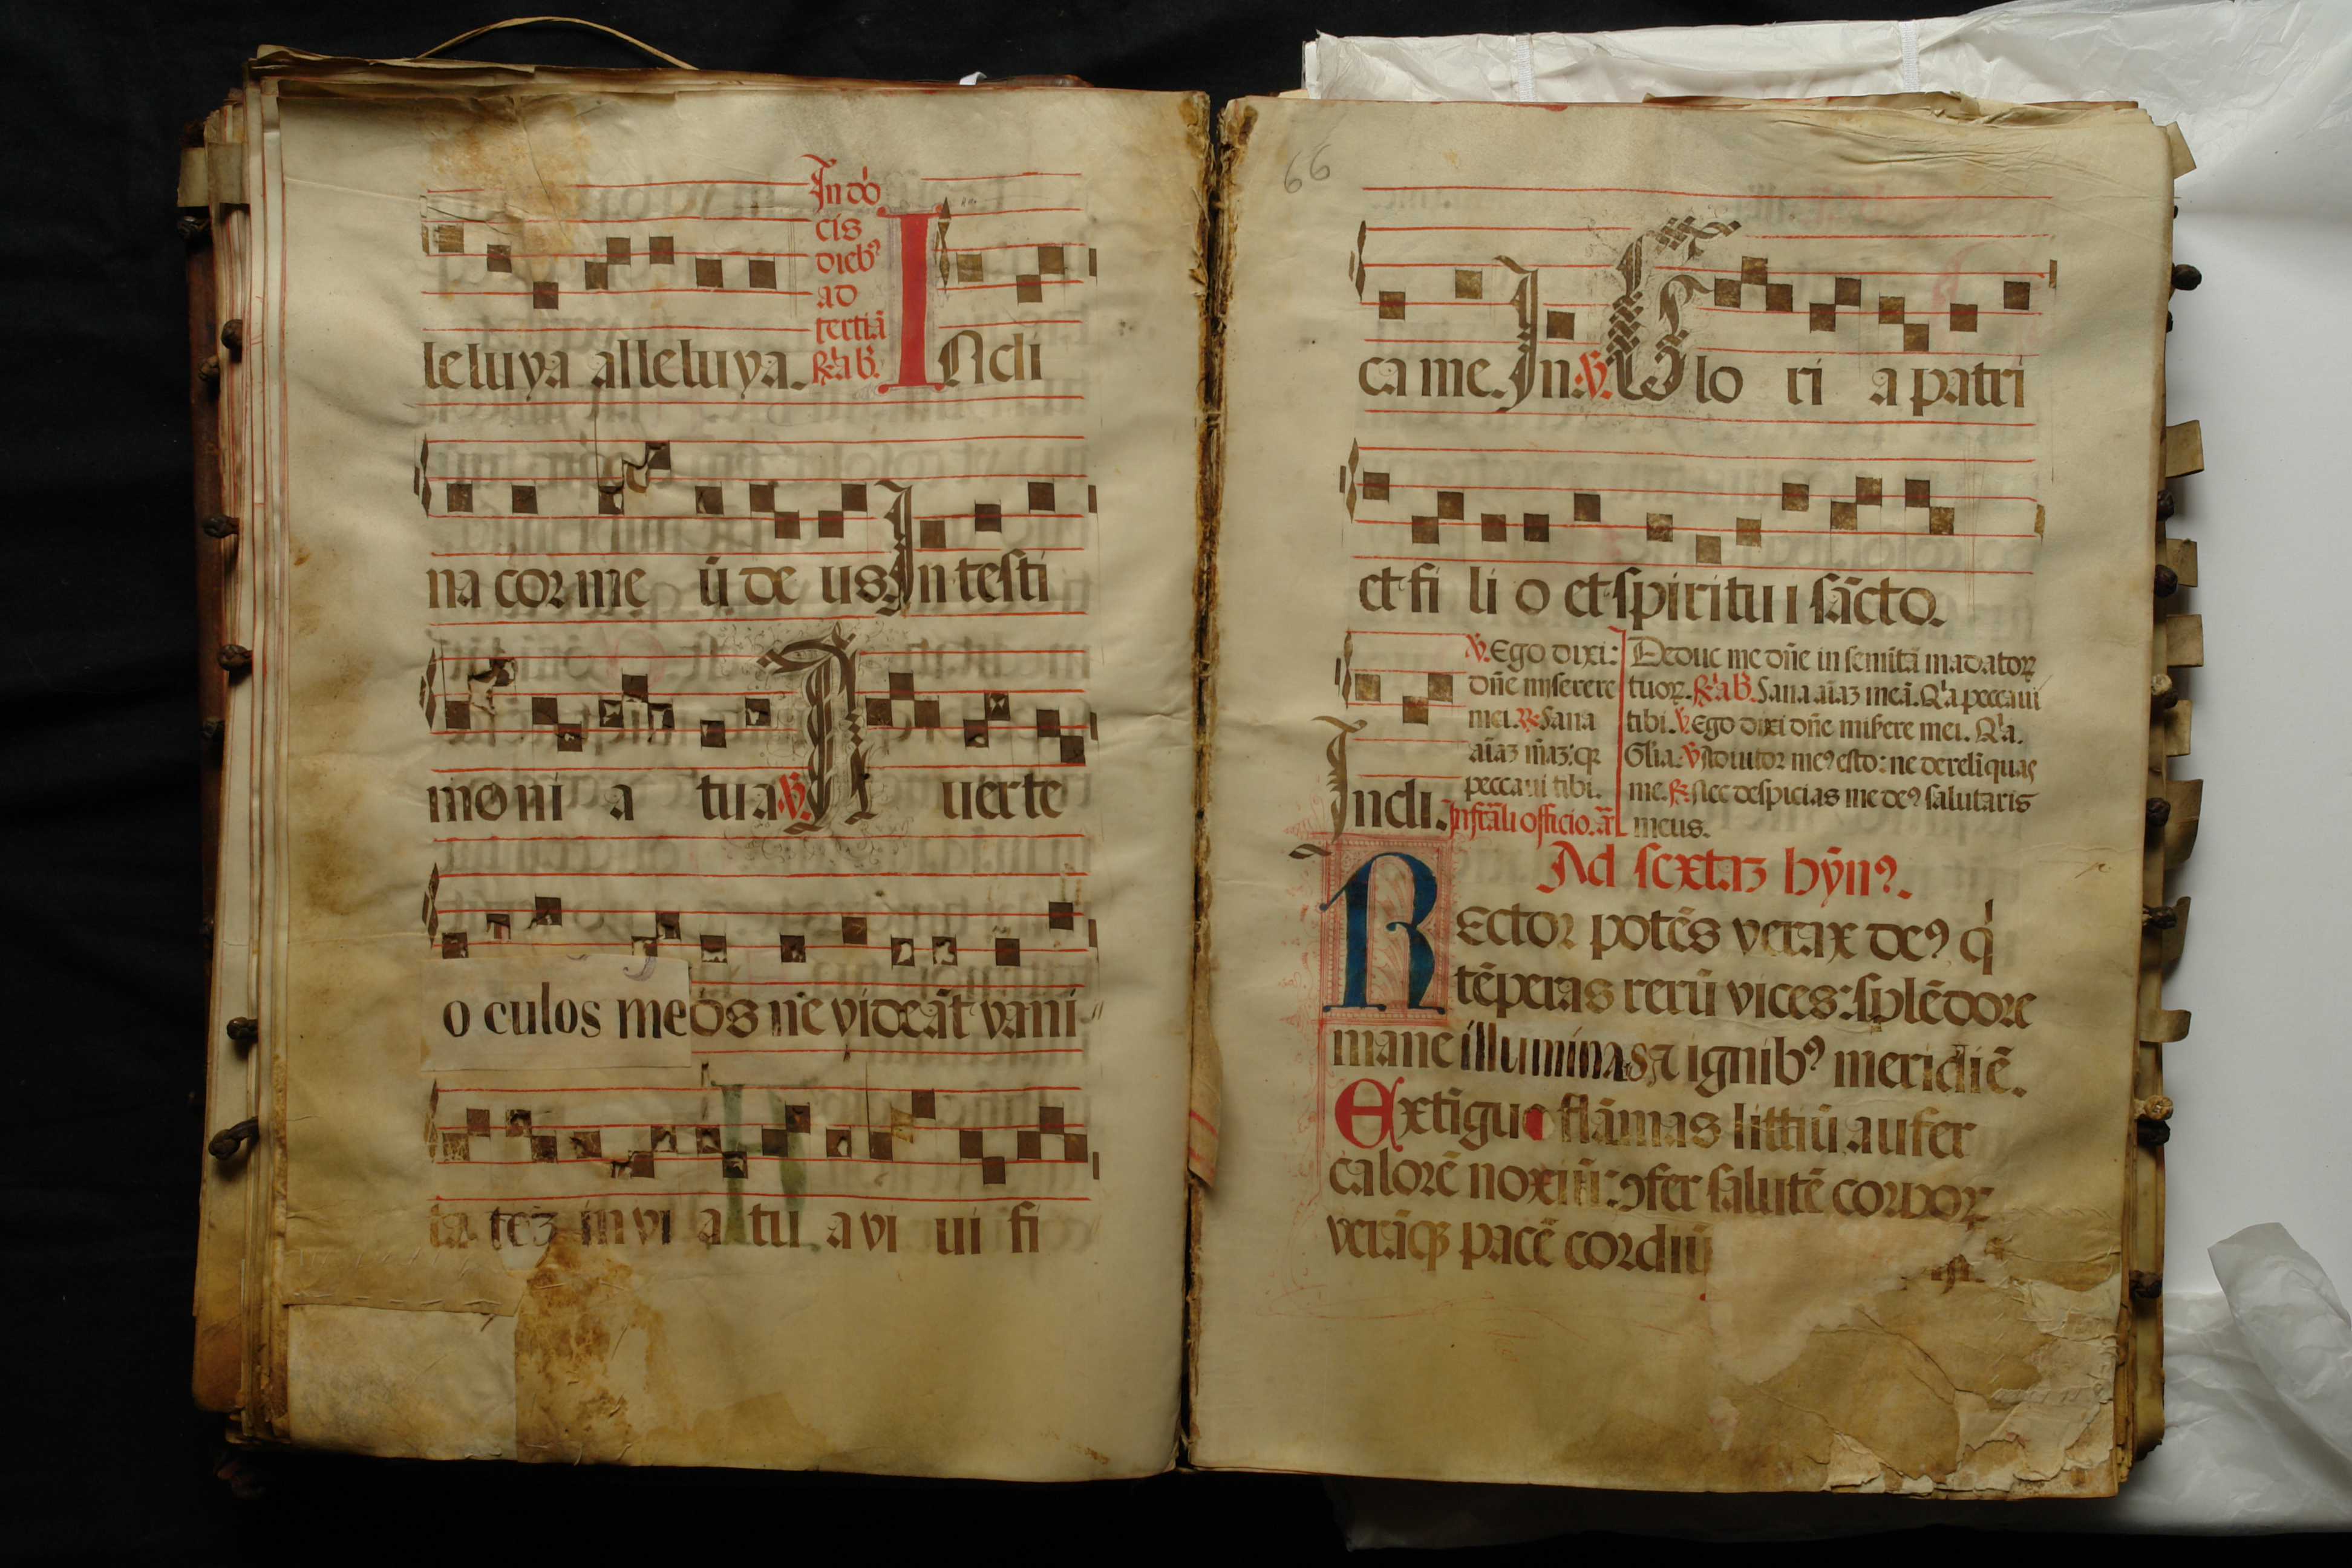 In dō
cis
dieb⁹
ad
tertiā
R̄ a b̄.
leluya alleluya. Incli
na cor me ū de us. In testi
mo ni a tua ℣. A uerte
o culos meos ne videāt vani
ta teȝ in vi a tu a vi ui fi
66
ca me. In. ℣. Glo ri a patri
et fi li o et spiritu i sācto.
Incli.
℣. Ego dixi:
dn̄e miserere
mei. ℟. Sana
aīaȝ m̄aȝ: qꝛ
peccaui tibi.
Infrāli officio. ā
Deduc me dn̄e in semitā mādatoꝝ
tuoꝝ. R̄ a b̄. Sana aīaȝ meā. Q̇a peccaui
tibi. ℣. Ego dixi dn̄e misere mei. Q̇a.
Gl̄ia. ℣. Adiutor me⁹ esto: ne derelīquas
me. ℟. Nec despicias me de⁹ salutaris
meus.
Ad sextaȝ hȳn⁹.
REctor potēs verax de⁹ q̇
tēperas rerū vices: splēdore
mane illuminas ⁊ ignib⁹ meridiē.
Extīgue flāmas littiū aufer
calorē noxiū: ꝯfer salutē corpoꝝ
verāqꝫ pacē cordiū